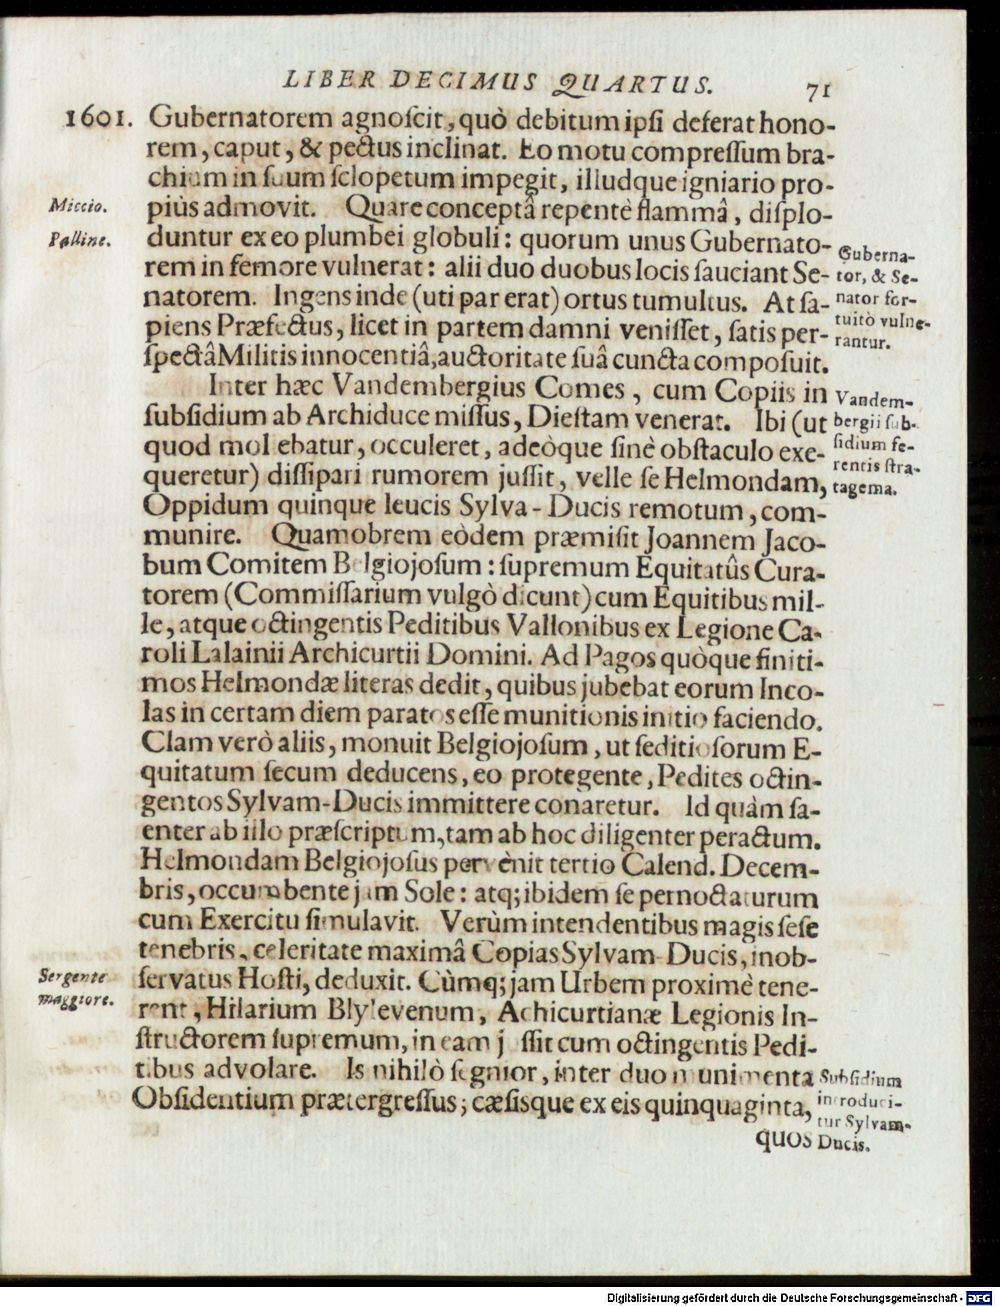 LIBER DECIMUS QUARTUS. 71
1601. Gubernatorem agnoſcit, quò debitum ipſi deferat hono-
rem, caput, & pectus inclinat. Eo motu compreſſum bra-
chium in ſuum ſclopetum impegit, illudque igniario pro-
Miccio. piùs admovit. Quare conceptâ repentè flammâ, diſplo-
Palline. duntur ex eo plumbei globuli: quorum unus Gubernato-
rem in femore vulnerat: alii duo duobus locis ſauciant Se-
natorem. Ingens inde (uti par erat) ortus tumultus. At ſa-
piens Præfectus, licet in partem damni veniſſet, ſatis per-
ſpectâ Militis innocentiâ, auctoritate ſuâ cuncta compoſuit.
Guberna-
tor, & Se-
nator for-
tuitò vulne-
rantur.
Inter hæc Vandembergius Comes, cum Copiis in
ſubſidium ab Archiduce miſſus, Dieſtam venerat. Ibi (ut
quod molebatur, occuleret, adeòque ſinè obſtaculo exe-
queretur) diſſipari rumorem juſſit, velle ſe Helmondam,
Vandem-
bergii ſub-
ſidium fe-
rentis ſtra-
tagema.
Oppidum quinque leucis Sylva-Ducis remotum, com-
munire. Quamobrem eòdem præmiſit Joannem Jaco-
bum Comitem Belgiojoſum: ſupremum Equitatûs Cura-
torem (Commiſſarium vulgò dicunt) cum Equitibus mil-
le, atque octingentis Peditibus Vallonibus ex Legione Ca-
roli Lalainii Archicurtii Domini. Ad Pagos quòque finiti-
mos Helmondæ literas dedit, quibus jubebat eorum Inco-
las in certam diem paratos eſſe munitionis initio faciendo.
Clam verò aliis, monuit Belgiojoſum, ut ſeditioſorum E-
quitatum ſecum deducens, eo protegente, Pedites octin-
gentos Sylvam-Ducis immittere conaretur. Id quàm ſa-
enter ab illo præſcriptum, tam ab hoc diligenter peractum.
Helmondam Belgiojoſus pervênit tertio Calend. Decem-
bris, occumbente jam Sole: atq; ibidem ſe pernoctaturum
cum Exercitu ſimulavit. Verùm intendentibus magis ſeſe
tenebris, celeritate maximâ Copias Sylvam-Ducis, inob-
Sergente ſervatus Hoſti, deduxit. Cùmq; jam Urbem proximè tene-
maggiore. rent, Hilarium Blylevenum, Achicurtianæ Legionis In-
ſtructorem ſupremum, in eam juſſit cum octingentis Pedi-
tibus advolare. Is nihilò ſegnior, inter duo munimenta
Obſidentium prætergreſſus; cæſisque ex eis quinquaginta,
Subſidium
introduci-
tur Sylvam-
Ducis.
quos
Digitalisierung gefördert durch die Deutsche Forschungsgemeinschaft - DFG